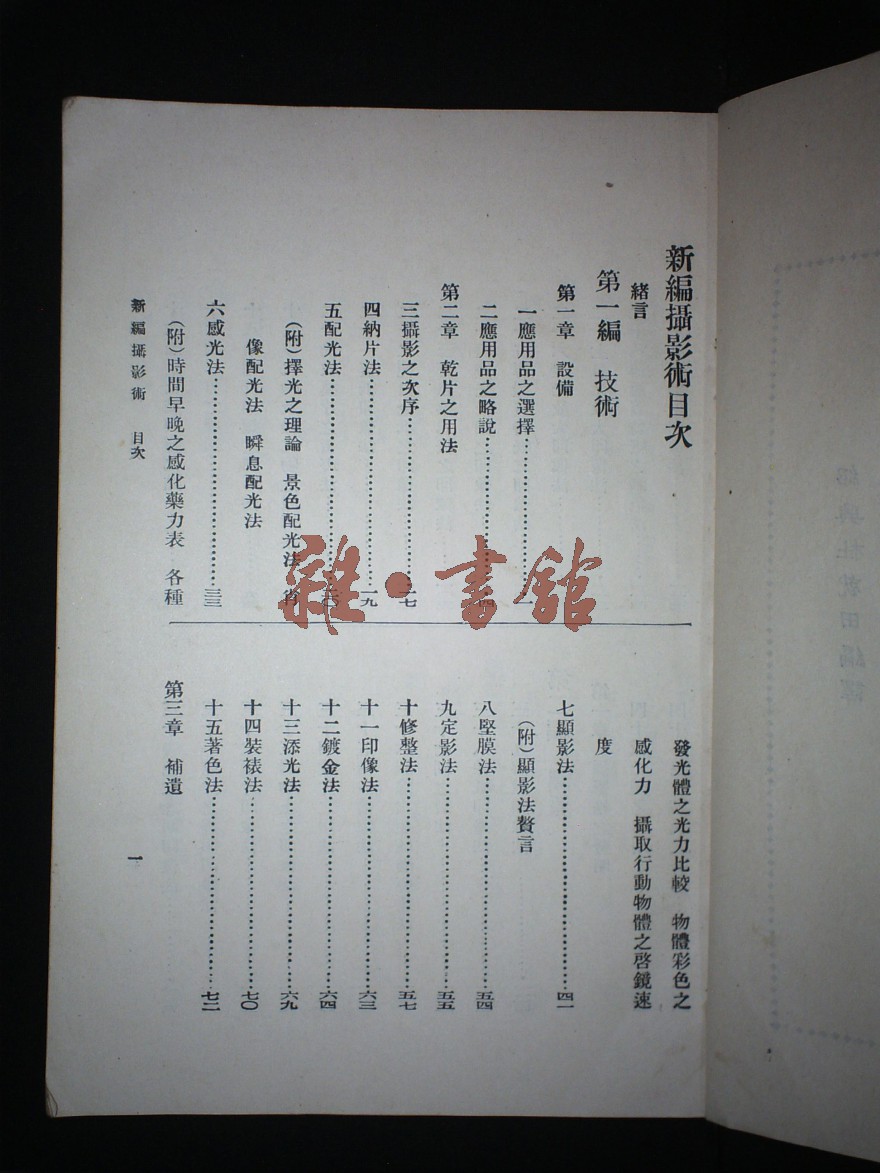 新編攝影術目次
緒言
第一編　技術
第一章　設備
一應用品之選擇…………一
二應用品之略說…………四
第二章　乾片之用法
三攝影之次序…………一七
四納片法…………一九
五配光法…………二〇
（附）擇光之理論　景色配光法　肖
像配光法　瞬息配光法
六感光法…………三三
（附）時間早晚之感化藥力表　各種
發光體之光力比較　物體彩色之
感化力　攝取行動物體之啓鏡速
度
七顯影法…………四一
（附）顯影法贅言
八堅膜法…………五四
九定影法…………五五
十修整法…………五七
十一印像法…………六三
十二鍍金法…………六四
十三添光法…………六九
十四裝裱法…………七〇
十五著色法…………七二
第三章　補遺
新編攝影術　目次
一
雜·書館